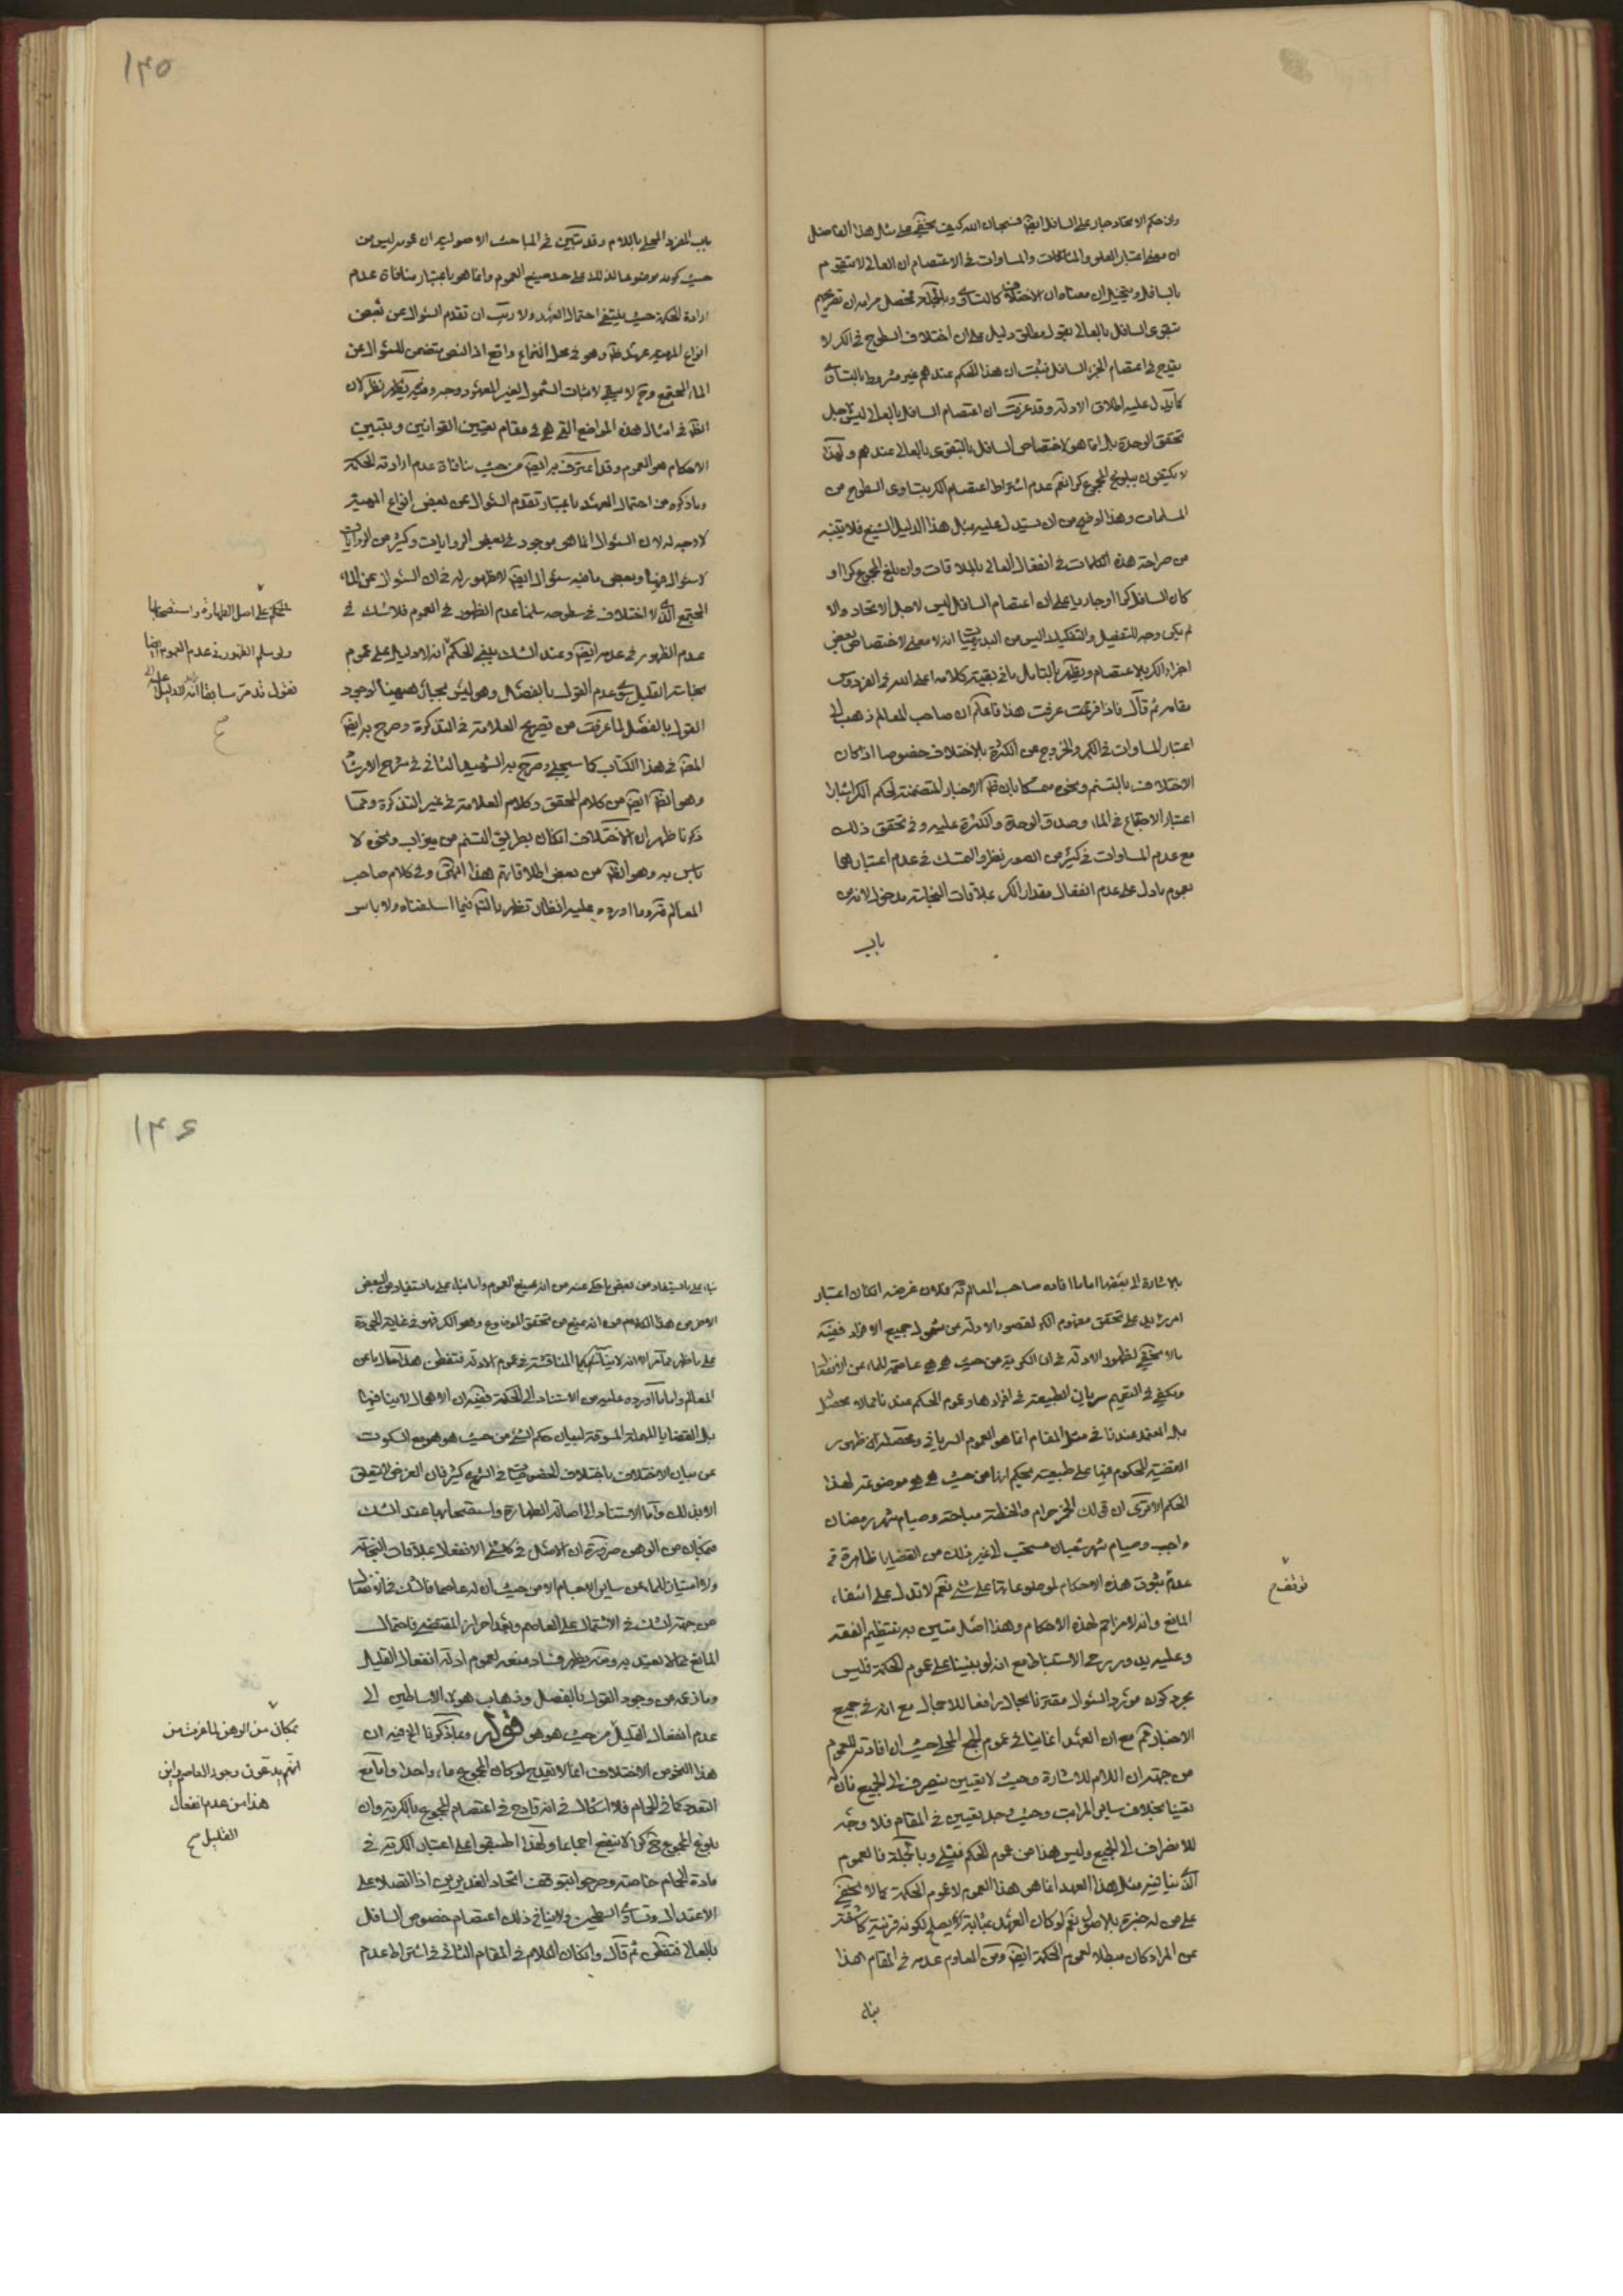 وان حكم الاتحاد جار على السافل ايضا فسبحان الله كيف يخفى على مثل هذا الفاضل
ان معنى اعتبار العلو والمساوات في الاعتصام ان العالي لا يتقوم
بالسافل ويتخيل ان معناه ان الاختلاف كالتساوي وبالجملة محصل مرامه ان تصريحهم
بتقوى السافل بالعالي بقول مطلق دليل على ان اختلاف السطوح في الكر لا
يقدح في اعتصام الجزء السافل فيثبت ان هذا الحكم عندهم غير مشروط بالتساوي
كما يدل عليه اطلاق الادلة وقد عرفت ان اعتصام السافل بالعالي ليس لاجل
تحقق الوحدة بل انما هو لاختصاص السافل بالتقوى بالعالي عندهم ولهذا
لا يكتفون ببلوغ المجموع كرا نعم عدم اشتراط اعتصام الكر بتساوى السطوح من
المسلمات وهذا اوضح من ان يستدل عليه بمثل هذا الدليل الشنيع فلا يتنبه
من صراحة هذه الكلمات في انفعال العالي بالملاقات وان بلغ المجموع كرا او
كان السافل كرا او جاريا على ان اعتصام السافل ليس لاجل الاتحاد والا
لم يكن وجه للتفصيل والتفكيك اليس من البديهيات انه لا معنى لاختصاص بعض
اجزاء الكر بالاعتصام ويظهر بالتأمل ما في بقية كلامه اعلى الله في الفردوس
مقامه ثم قال فاذا فرغت عرفت هذا فاعلم ان صاحب المعالم ذهب الى
اعتبار المساوات في الكر والخروج عن الكثرة بالاختلاف خصوصا اذا كان
الاختلاف بالتسنم ونحوه متمسكا بان ظاهر الاخبار المتضمنة لحكم الكر اشتراط
اعتبار الاجتماع في الماء وصدق الوحدة والكثرة عليه وفي تحقق ذلك
مع عدم المساوات في كثير من الصور نظر والتمسك في عدم اعتبارها
بعموم ما دل على عدم انفعال مقدار الكر بملاقات النجاسة مدخول لانه من
باب
١٤٥
باب المفرد المحلى باللام وقد تبين في المباحث الاصولية ان عمومه ليس من
حيث كونه موضوعا لذلك على حد صيغ العموم وانما هو باعتبار منافاة عدم
ارادة الحكمة حيث ينتفي احتمال العهد ولا ريب ان تقدم السؤال عن بعض
انواع المهية عهد ظاهر وهو في محل النزاع واقع اذ النص يتضمن السؤال عن
الماء المجتمع وح لا يبقى لاثبات الشمول لغير المعهود وجه وفيه نظر لان
الظاهر في امثال هذه المواضع التي هي في مقام تعيين القوانين وتبيين
الاحكام هو العموم وقد اعترف به ايضا من حيث منافاة عدم ارادته للحكمة
وما ذكره من احتمال العهد باعتبار تقدم السؤال عن بعض انواع المهية
لا وجه له لان السؤال انما هو موجود في بعض الروايات وكثير من الروايات
لا سؤال فيها وبعض ما فيه سؤال ايضا لا ظهور له في ان السؤال عن الماء
المجتمع الذي لا اختلاف في سطوحه سلمنا عدم الظهور في العموم فلا شك في
عدم الظهور في عدمه ايضا وعند الشك يبقى الحكم انه لا دليل على عموم
نجاسة القليل سوى عدم القول بالفصل وهو ليس بجار ههنا لوجود
القول بالفصل لما عرفت من تصريح العلامة في التذكرة وصرح به ايضا
المصنف في هذا الكتاب كما سيجئ وصرح به الشهيد الثاني في شرح الارشاد
وهو الظاهر ايضا من كلام المحقق وكلام العلامة في غير التذكرة ومما
ذكرنا ظهر ان الاختلاف اذا كان بطريق التسنم من ميزاب ونحوه لا
باس به وهو الظاهر من بعض اطلاقاتهم هذا انتهى وفي كلام صاحب
المعالم قده وما اورده عليه انظار تظهر بالتدبر فيما اسلفناه ولا باس
على اصل الطهارة واستصحابها
ولو سلم الظهور في عدم العموم ايضا
نقول قد مر سابقا انه لا دليل على
صح
بالاشارة الى بعضها اما ما افاده صاحب المعالم قده فلان غرضه ان كان اعتبار
امر زايد على تحقق مفهوم الكر لقصور الادلة عن شمول جميع الافراد ففيه
ما لا يخفى لظهور الادلة في ان الكرية من حيث هي هي عاصمة للماء عن الانفعال
ويكفي في التعميم سريان الطبيعة في افرادها وعموم الحكم عندنا مما لا محصل
بل المعتمد عندنا في مثل المقام انما هو العموم السرياني ومحصله ان ظهور
القضية المحكوم فيها على طبيعة بحكم انها من حيث هي هي موضوعة لهذا
الحكم الا ترى ان قولك الخمر حرام والحنطة مباحة وصيام شهر رمضان
واجب وصيام شهر شعبان مستحب الى غير ذلك من القضايا ظاهرة في
عدم ثبوت هذه الاحكام لموضوعاتها على شيء نعم لا تدل على انتفاء
المانع وانه لا مزاحم لهذه الاحكام وهذا اصل متين به ينتظم الفقه
وعليه يدور رحى الاستنباط مع انه لو بنينا على عموم الحكمة فليس
مجرد كون مورد السؤال مقترنا بحال رافعا للاجمال مع انه في جميع
الاخبار ثم مع ان العهد انما ينافي عموم الجمع المحلى حيث ان افادته للعموم
من جهة ان اللام للاشارة وحيث لا تعيين ينصرف الى الجميع فان له
تعينا بخلاف ساير المراتب وحيث وجد تعيين في المقام فلا وجه
للانصراف الى الجميع وليس هذا من عموم الحكم في شيء وبالجملة فالعموم
الذي ينافيه مثل هذا العهد انما هو هذا العموم لا عموم الحكمة كما لا يخفى
على من له خبرة بالاصول نعم لو كان العهد بمثابة يصلح لكونه قرينة كاشفة
عن المراد كان مبطلا لعموم الحكمة ايضا ومن المعلوم عدمه في المقام هذا
بناء
توقف
١٤٦
بناء على ما يستفاد من بعض ما حكى عنه من انه صيغ العموم واما بناء على ما يستفاد من البعض
الاخر من هذا الكلام من انه يمنع من تحقق الموضوع وهو الكر فهو في غاية الجودة
على ما ظهر مما مر الا انه لا يناسبه المناقشة في عموم الادلة فتفطن هذا حال ما عن
المعالم واما ما اورده عليه من الاستناد الى الحكمة ففيه ان الاهمال لا ينافيها
بل القضايا المهملة المسوقة لبيان حكم الشيء من حيث هو هو مع السكوت
عن بيان الاختلاف باختلاف الخصوصيات في الشرع كثير فان الغرض لا يتعلق
الا بذلك واما الاستناد الى اصالة الطهارة واستصحابها عند الشك
فبمكان من الوهن ضرورة ان الاصل في كل شيء الانفعال بملاقات النجاسة
ولا امتياز للماء عن ساير الاجسام الا من حيث ان له عاصما فالشك في انفعاله
من جهة الشك في الاشتمال على العاصم وبعد احراز المقتضي فاحتمال
المانع مما لا يعتد به ومنه يظهر فساد منعه لعموم ادلة انفعال القليل
وما زعمه من وجود القول بالفصل وذهاب هؤلاء الاساطين الى
عدم انفعال القليل من حيث هو هو قوله ومما ذكرنا الخ فيه ان
هذا النحو من الاختلاف انما لا يقدح لو كان المجموع ماء واحدا واما مع
التعدد كما في الحمام فلا اشكال في انه قادح في اعتصام المجموع بالكرية وان
بلوغ المجموع ح كرا لا ينفع اجماعا ولهذا اطبقوا على اعتبار الكرية في
مادة الحمام خاصة وصرحوا بتوقف اتحاد الغديرين اذا اتصلا على
الاعتدال وتساوي السطحين ولا ينافي ذلك اعتصام خصوص السافل
بالعالي فتفطن ثم قال وان كان الكلام في المقام الثاني في اشتراط عدم
بمكان من الوهن لما عرفت من
انهم يدعون وجود العاصم واين
هذا من عدم انفعال
القليل صح